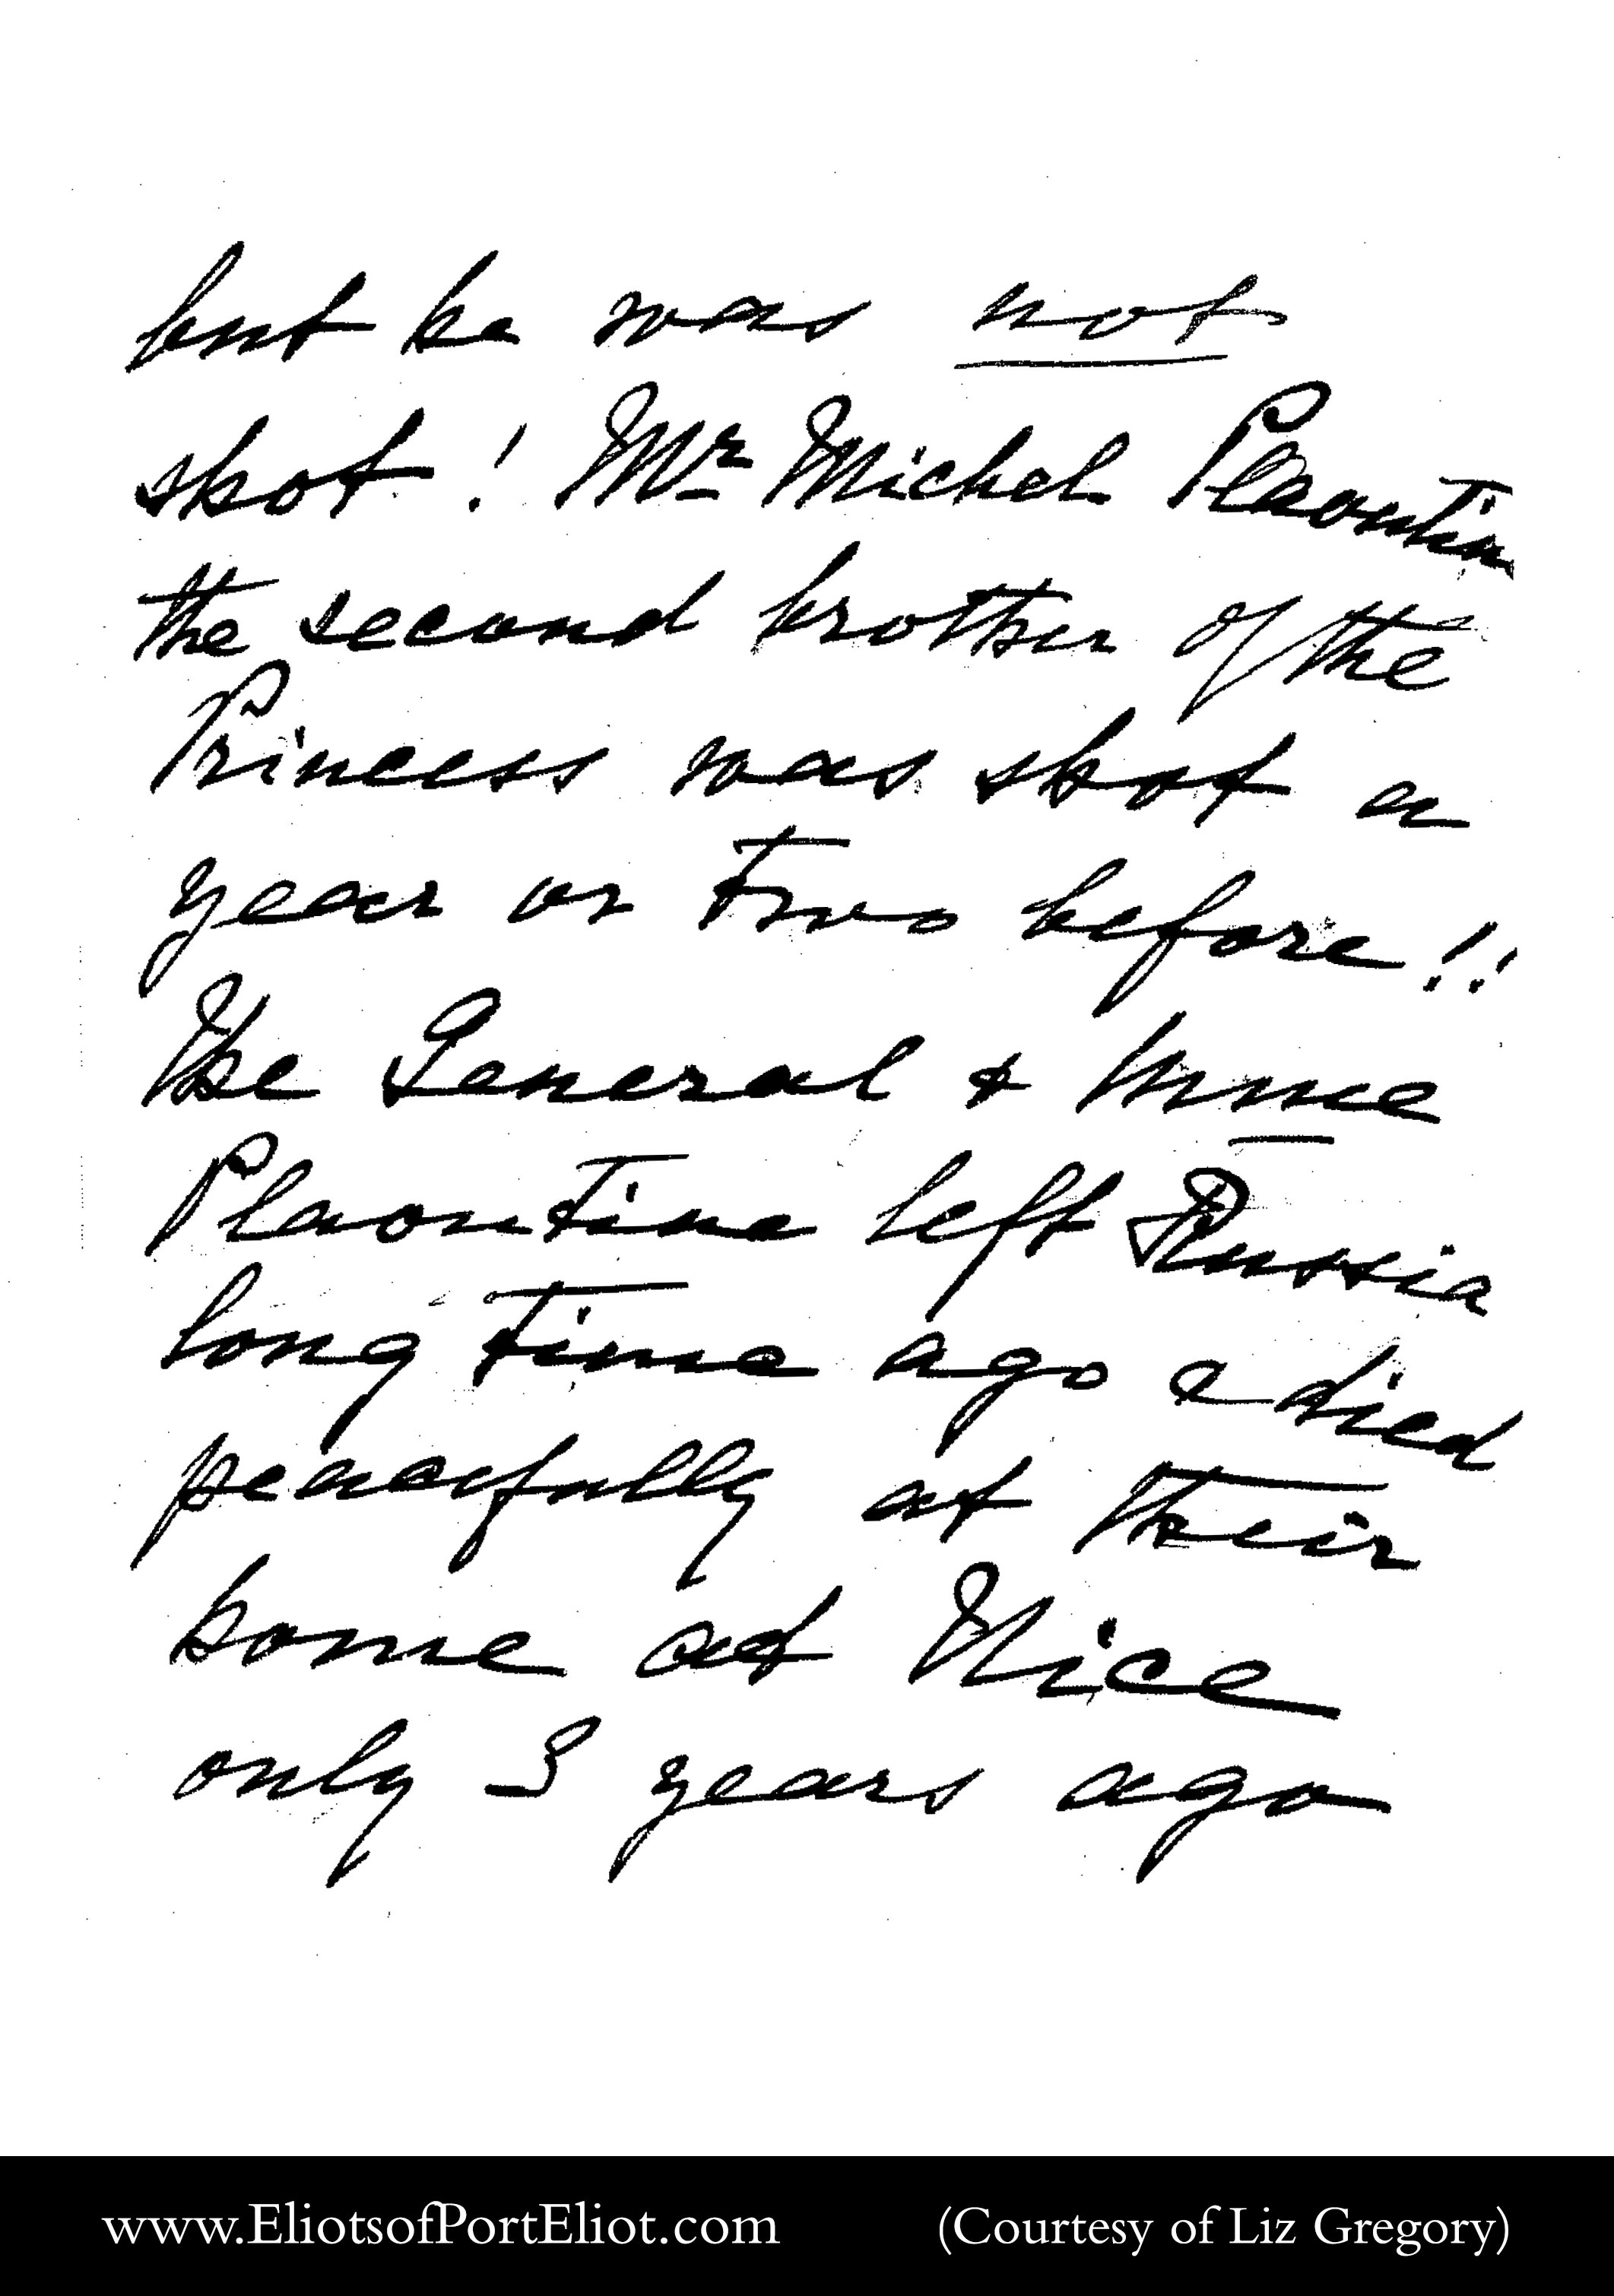 but he was not
shot! Mr Michel Plaoutine
the second brother of the
Princess was shot a
year or two before!!
The General & Mme
Plaoutine left Russia
long time ago & died
peacefully at their
home at Nice
only 3 years ago
www.EliotsofPortEliot.com (Courtesy of Liz Gregory)